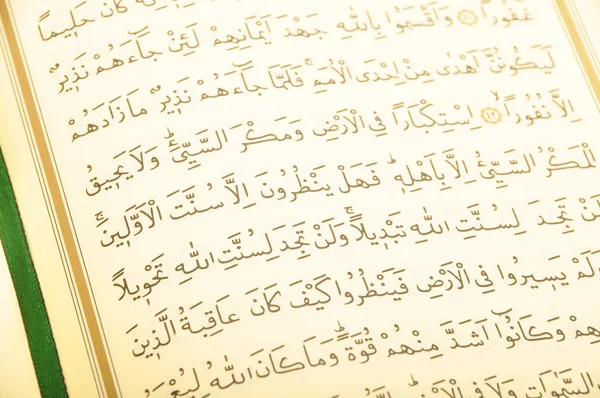 إِنَّهُ كَانَ حَلِيمًا
غَفُورًا ﴿٤١﴾ وَاَقْسَمُوا بِاللّٰهِ جَهْدَ اَيْمَانِهِمْ لَئِنْ جَٓاءَهُمْ نَذ۪يرٌ
لَيَكُونُنَّ اَهْدٰى مِنْ اِحْدَى الْاُمَمِۚ فَلَمَّا جَٓاءَهُمْ نَذ۪يرٌ مَا زَادَهُمْ
اِلَّا نُفُورًاۙ ﴿٤٢﴾ اِسْتِكْبَارًا فِي الْاَرْضِ وَمَكْرَ السَّيِّئِۜ وَلَا يَح۪يقُ
الْمَكْرُ السَّيِّئُ اِلَّا بِاَهْلِه۪ۜ فَهَلْ يَنْظُرُونَ اِلَّا سُنَّتَ الْاَوَّل۪ينَۚ
فَلَنْ تَجِدَ لِسُنَّتِ اللّٰهِ تَبْد۪يلًاۚ وَلَنْ تَجِدَ لِسُنَّتِ اللّٰهِ تَحْو۪يلًا
اَوَلَمْ يَس۪يرُوا فِي الْاَرْضِ فَيَنْظُرُوا كَيْفَ كَانَ عَاقِبَةُ الَّذ۪ينَ
وَكَانُٓوا اَشَدَّ مِنْهُمْ قُوَّةًۜ وَمَا كَانَ اللّٰهُ
السَّمٰوَاتِ وَلَا فِي الْاَرْضِۜ